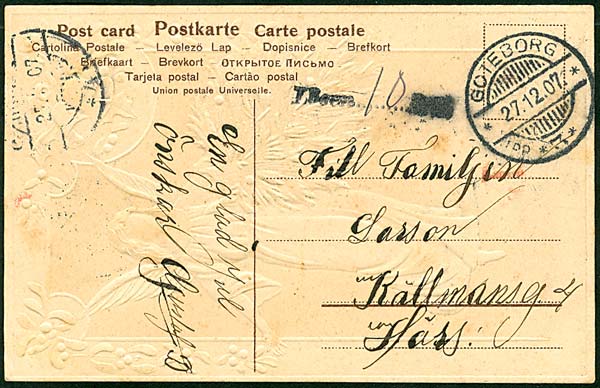 Post card Postkarte Carte postale
Cartolina Postale – Levelező Lap – Dopisnice – Brefkort
Briefkaart – Brevkort – ОТКРЫТОЕ ПИСЬМО
Tarjeta postal – Cartão postal
Union postale Universelle.
10
GÖTEBORG
27.12.07
* 1 *
Till Familjen
Larson
Källmansg 4
En glad Jul
Önskar